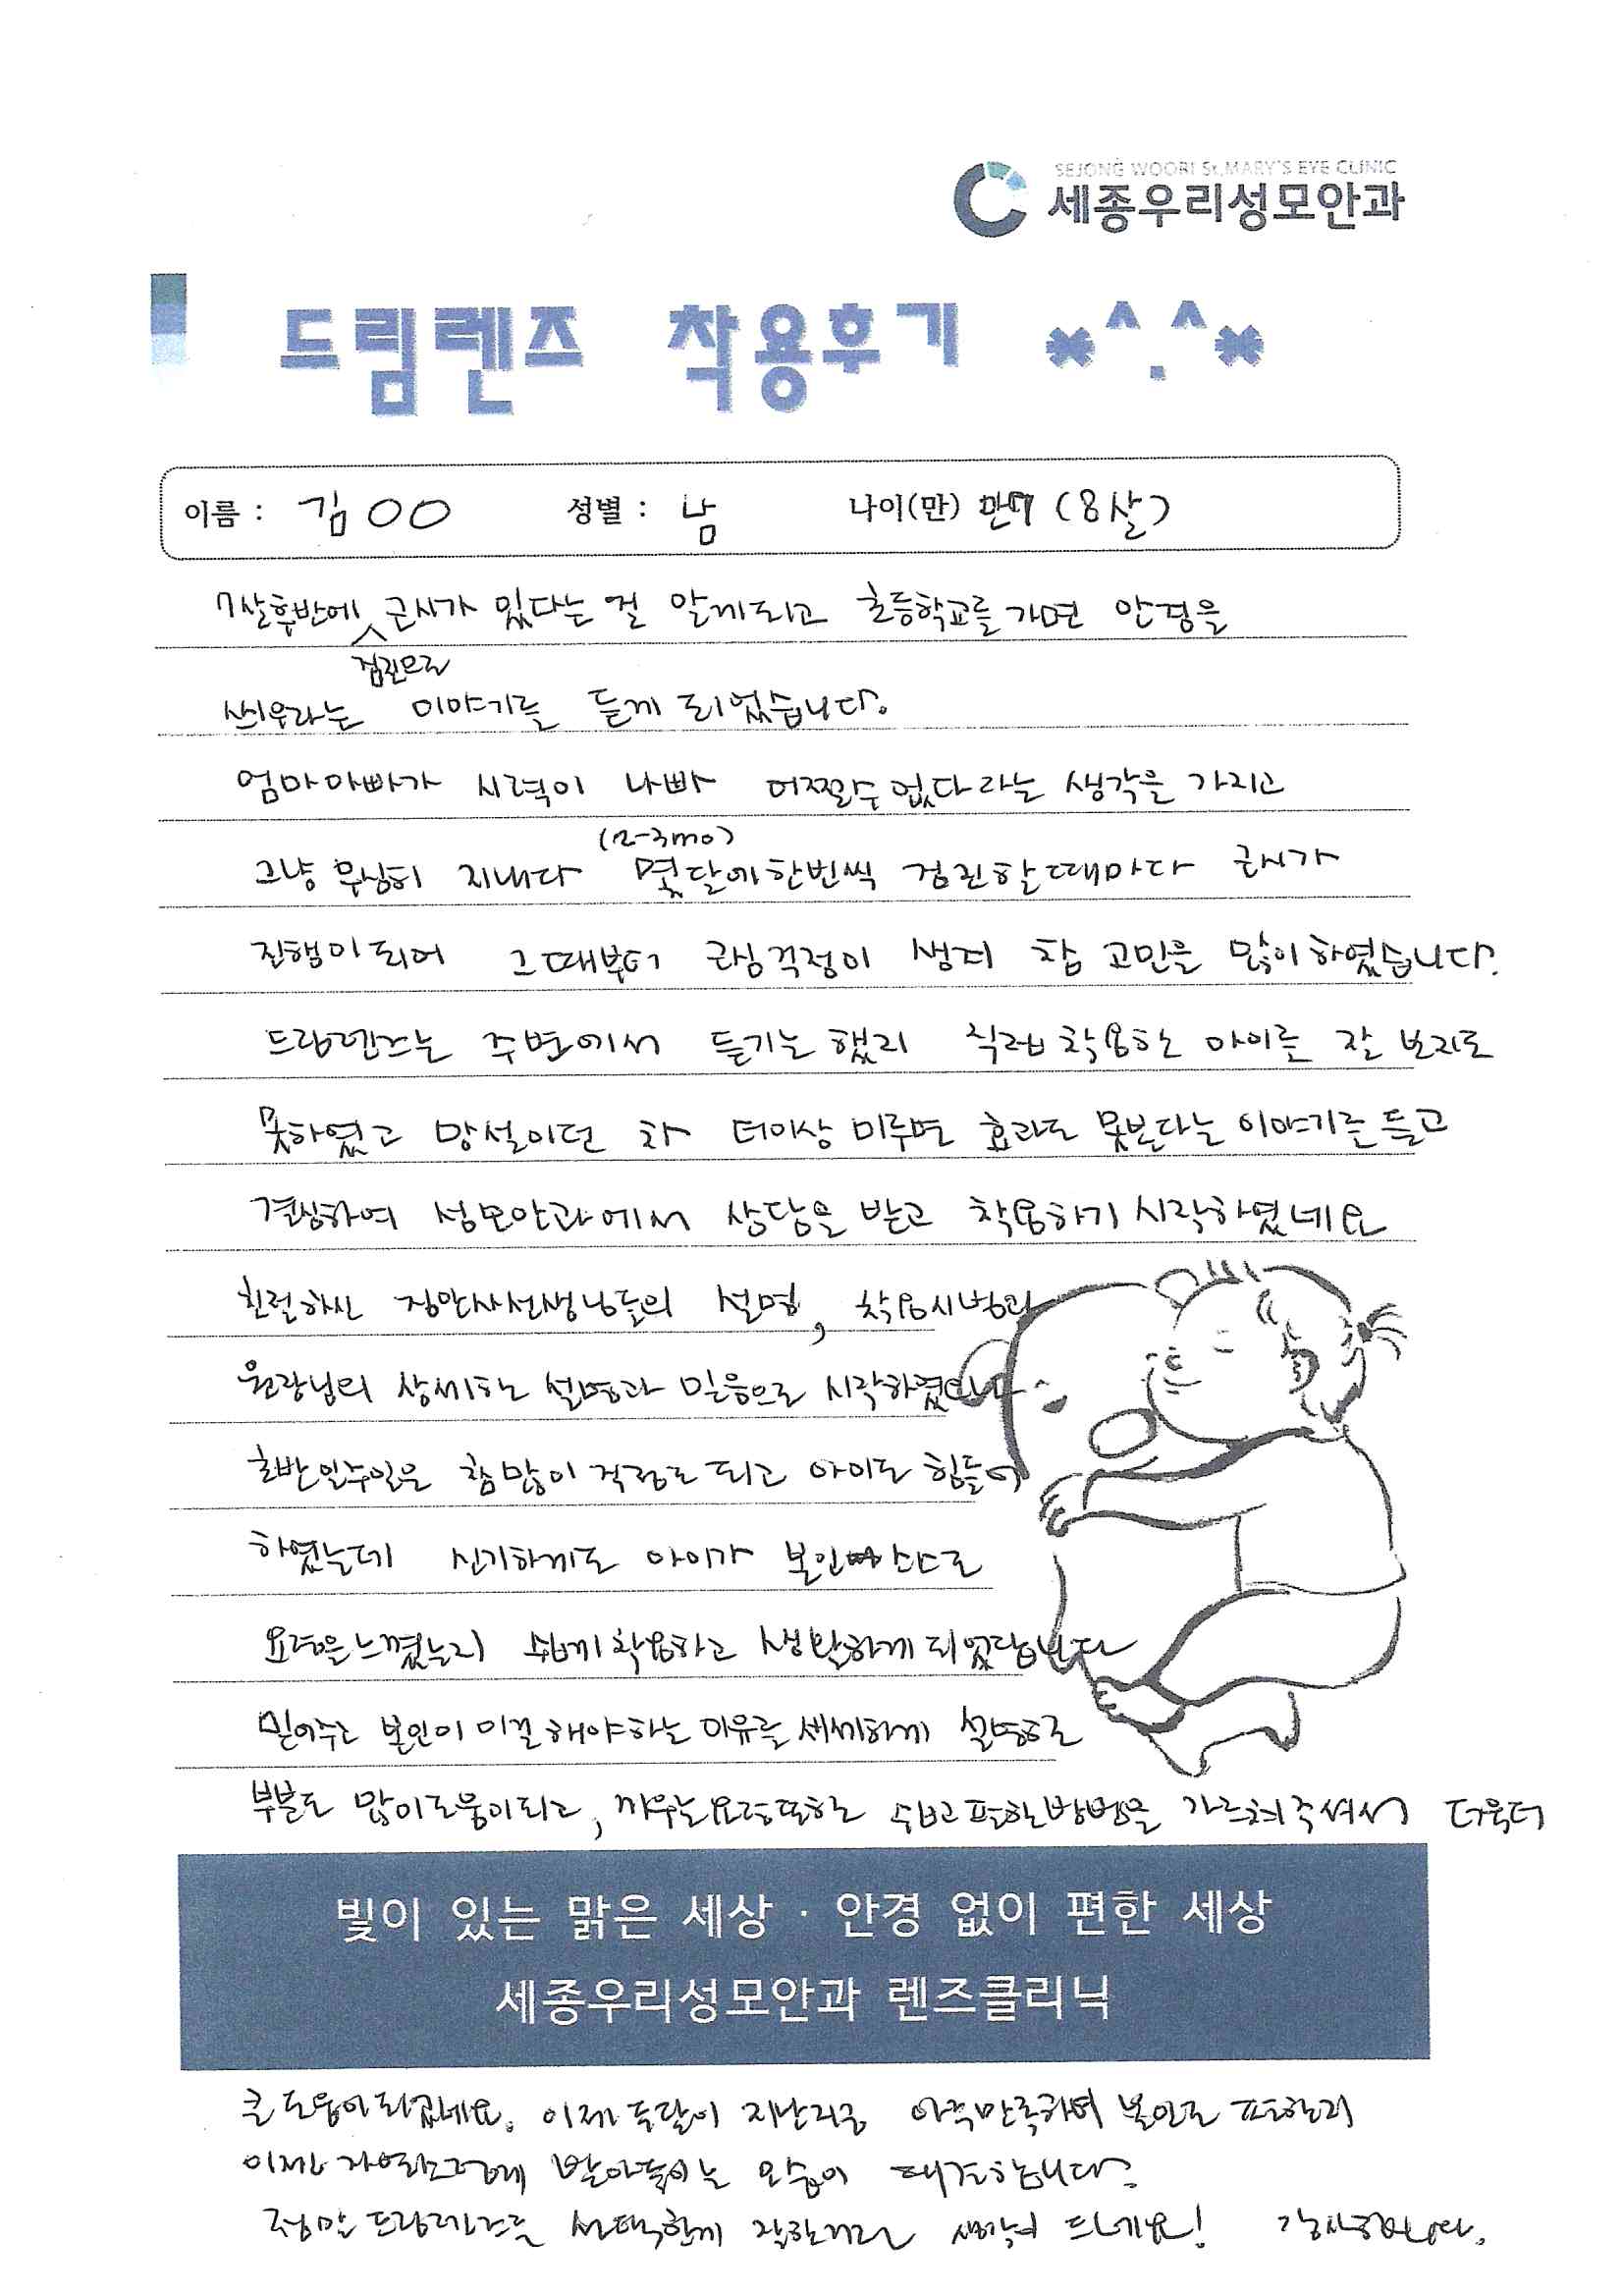 SEJONG WOORI St.MARY'S EYE CLINIC
세종우리성모안과
드림렌즈 착용후기 *^.^*
이름 : 김OO 성별 : 남 나이(만) 만7 (8살)
7살후반에 근시가 있다는 걸 알게되고 초등학교를 가면 안경을
검진으로
씌우라는 이야기를 듣게 되었습니다.
엄마아빠가 시력이 나빠 어쩔수없다라는 생각을 가지고
(2-3mo)
그냥 무심히 지내다 몇달에한번씩 검진할때마다 근시가
진행이되어 그때부터 근심걱정이 생겨 참 고민을 많이하였습니다.
드림렌즈는 주변에서 듣기는 했지 직접 착용하는 아이를 잘 보지도
못하였고 망설이던 차 더이상 미루면 효과도 못본다는 이야기를 듣고
결심하여 성모안과에서 상담을 받고 착용하기 시작하였네요
친절하신 검안사선생님들의 설명, 착용시범과
원장님의 상세한 설명과 믿음으로 시작하였으나
초반일주일은 참많이 걱정도 되고 아이도 힘들어
하였는데 신기하게도 아이가 본인 스스로
요령을느꼈는지 쉽게착용하고 생활하게되었답니다
믿어주고 본인이 이걸해야하는 이유를 세세하게 설명한
부분도 많이도움이되고, 끼우는요령또한 쉽고편한방법을 가르쳐주셔서 더욱더
빛이 있는 맑은 세상 · 안경 없이 편한 세상
세종우리성모안과 렌즈클리닉
큰도움이되었네요. 이제 두달이 지난지금 아주만족하며 본인도 편한지
이제 자연스럽게 받아들이는 모습이 대견합니다.
정말 드림렌즈를 선택한게 잘한거란 생각이 드네요! 감사합니다.